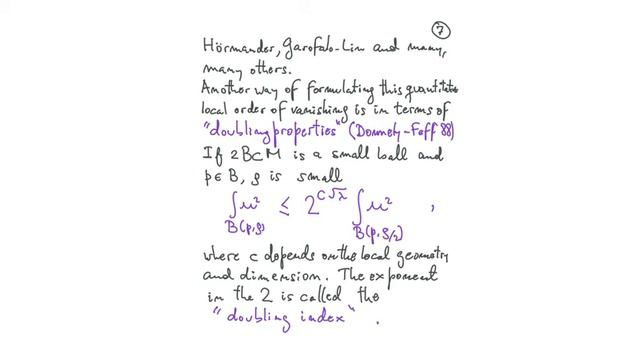 7
Hörmander, Garofalo-Lin and many,
many others.
Another way of formulating this quantitate
local order of vanishing is in terms of
"doubling properties" (Donnely-Feff 88)
If 2B⊂M is a small ball and
p∈B, ρ is small
∫_{B(p,ρ)} u² ≤ 2^{C√λ} ∫_{B(p,ρ/2)} u² ,
where c depends on the local geometry
and dimension. The exponent
in the 2 is called the
"doubling index" .